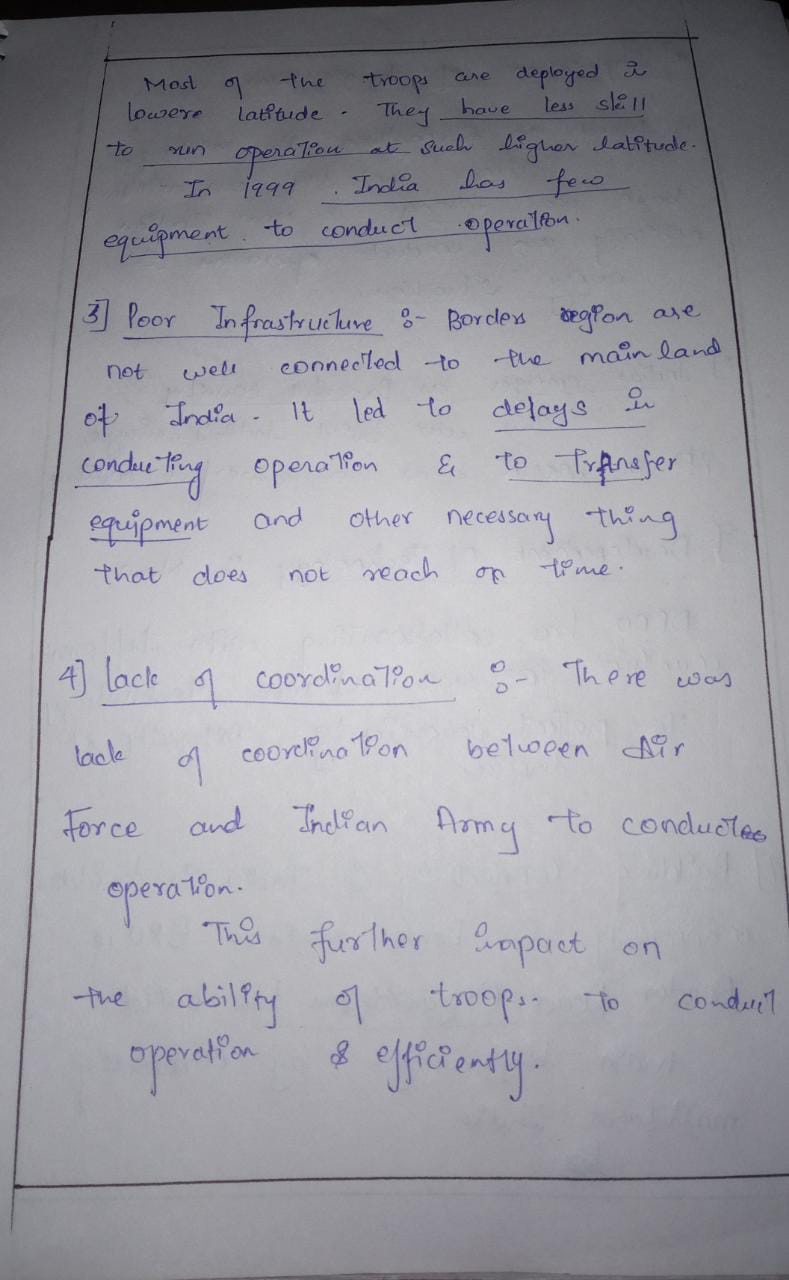 Most of the troops are deployed in
lowere latitude. They have less skill
to run operation at such higher latitude.
In 1999, India has few
equipment to conduct operation.
3] Poor Infrastructure :- Borders region are
not well connected to the main land
of India. It led to delays in
conducting operation & to Transfer
equipment and other necessary thing
that does not reach on time.
4] lack of coordination :- There was
lack of coordination between Air
Force and Indian Army to conductes
operation.
This further impact on
the ability of troops. to conduct
operation & efficiently.